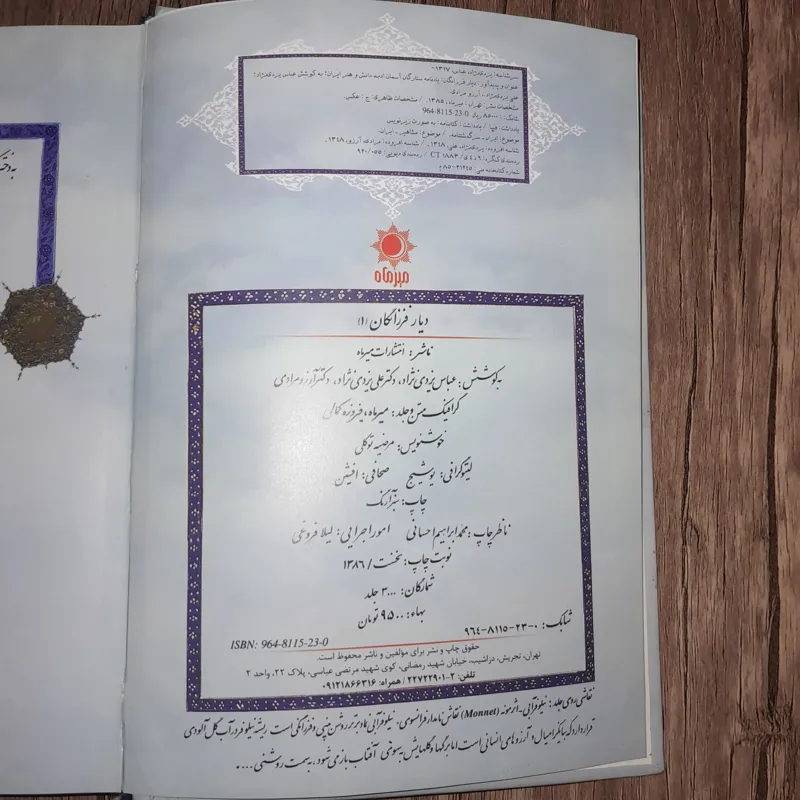 سرشناسه: یزدی‌نژاد، عباس، ۱۳۱۷-
عنوان و پدیدآور: دیار فرزانگان: یادنامه ستارگان آسمان ادب، دانش و هنر ایران/ به کوشش عباس یزدی‌نژاد؛
علی یزدی‌نژاد، آرزو مرادی.
مشخصات نشر: تهران: میرماه، ۱۳۸۵. / مشخصات ظاهری: ج: عکس.
شابک: ۸۵۰۰۰ ریال 964-8115-23-0
یادداشت: فیپا / یادداشت: کتابنامه: به صورت زیرنویس
موضوع: ایران - سرگذشتنامه. / موضوع: مشاهیر - ایران.
شناسه افزوده: یزدی‌نژاد، علی، ۱۳۴۸ - / شناسه افزوده: مرادی، آرزو، ۱۳۴۸ -
رده‌بندی کنگره: ۹د۴ی/ CT ۱۸۸۳ / رده‌بندی دیویی: ۹۲۰/۰۵۵
شماره کتابخانه ملی: ۲۱۲۴۵-۸۵م
میرماه
دیار فرزانگان (۱)
ناشر: انتشارات میرماه
به کوشش: عباس یزدی نژاد، دکتر علی یزدی نژاد، دکتر آرزو مرادی
گرافیک متن و جلد: میرماه، فیروزه کمالی
خوشنویس: مرضیه توکلی
لیتوگرافی: یوشیج صحافی: افشین
چاپ: سبز آرنگ
ناظر چاپ: محمد ابراهیم احسانی امور اجرایی: لیلا فروغی
نوبت چاپ: نخست / ۱۳۸۶
شمارگان: ۳۰۰۰ جلد
بهاء: ۹۵۰۰ تومان
شابک: ۰-۲۳-۸۱۱۵-۹۶۴
ISBN: 964-8115-23-0
حقوق چاپ و نشر برای مؤلفین و ناشر محفوظ است.
تهران، تجریش، دزاشیب، خیابان شهید رمضانی، کوی شهید مرتضی عباسی، پلاک ۲۲، واحد ۲
تلفن: ۲-۲۲۷۲۲۹۰۱ / همراه: ۰۹۱۲۱۸۶۶۳۱۶
نقاشی روی جلد: نیلوفر آبی - اثر مونه (Monnet) نقاش نامدار فرانسوی، نیلوفر آبی نماد برتر روشن بینی و فرزانگی است ریشه نیلوفر در آب گل آلودی
قرار دارد که بیانگر امیال و آرزوهای انسانی است اما برگها و گلهایش به سوی آفتاب باز می شود، به سمت روشنی ....